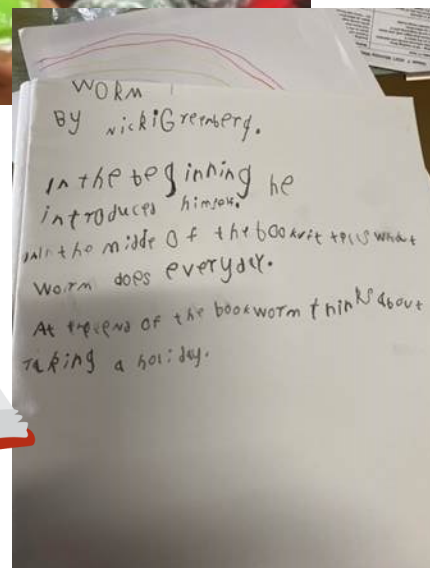 WORM
By nicki Greenberg.
In the beginning he
introduces himself.
In the middle of the book it tells what
worm does everyday.
At the end of the book worm thinks about
taking a holiday.